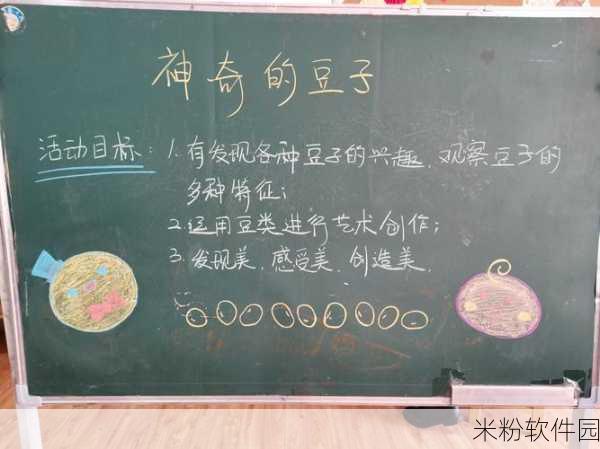 神奇的豆子
活动目标：1.有发现各种豆子的兴趣，观察豆子的
多种特征；
2.运用豆类进行艺术创作；
3.发现美、感受美、创造美。
米粉软件园